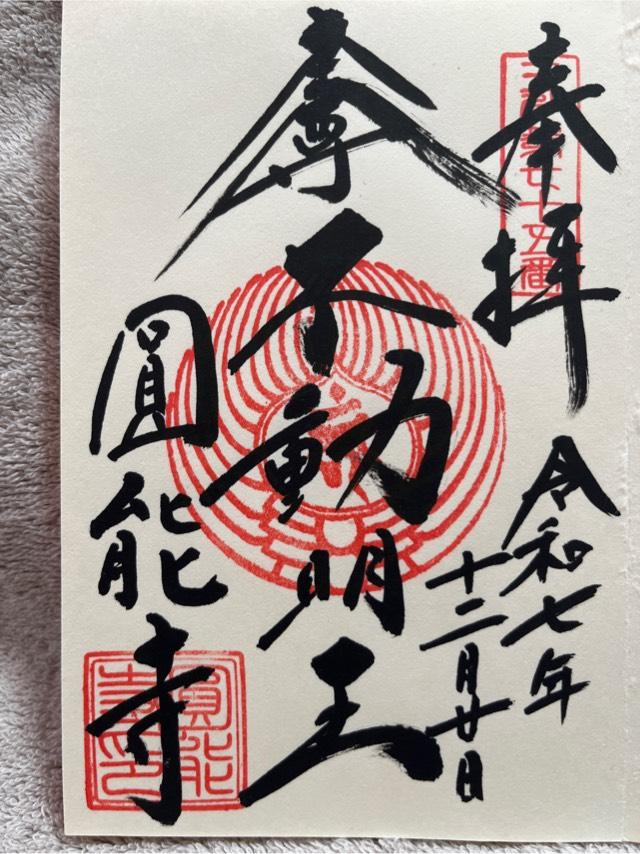 奉拝
七十五番
令和七年
十二月廿日
不動明王
圓能寺
圓能
寺印